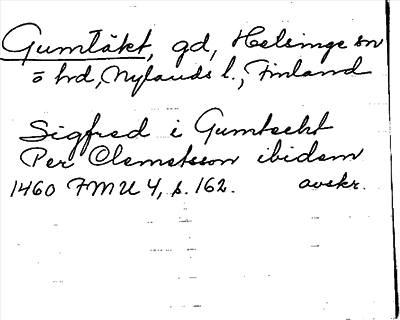 Gumtäkt, gd, Helsinge sn
ö hd, Nylands l., Finland
Sigfred i Gumtecht
Per Clemetsson ibidem
1460 FMU 4, s. 162. avskr.